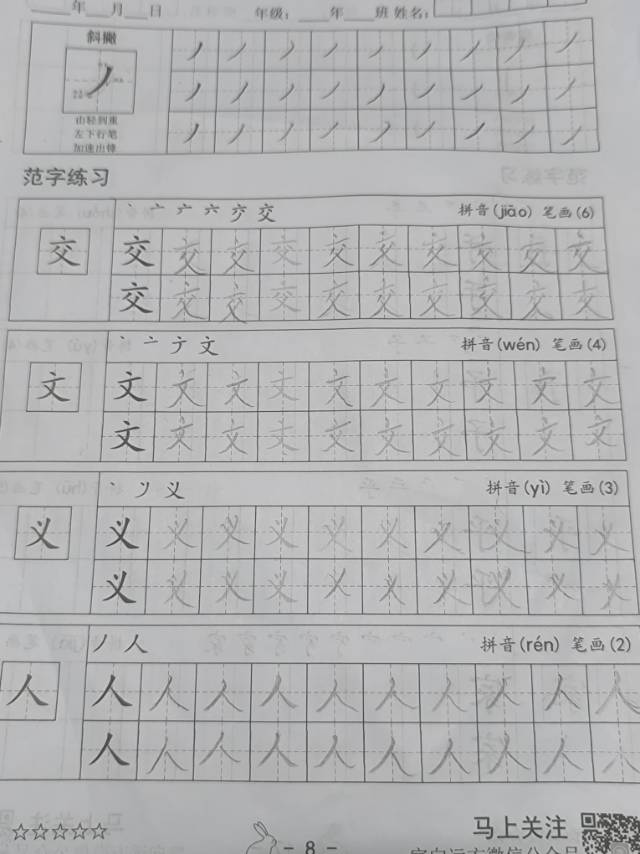 年___月___日 年级:___年___班 姓名:
斜撇
丿 丿 丿 丿 丿 丿 丿 丿 丿 丿
丿 丿 丿 丿 丿 丿 丿 丿 丿
丿 丿 丿 丿 丿 丿 丿 丿 丿
由轻到重
左下行笔
加速出锋
范字练习
丶 亠 六 交 拼音(jiāo) 笔画(6)
交 交 交 交 交 交 交 交 交 交 交
交 交 交 交 交 交 交 交 交 交
丶 亠 文 拼音(wén) 笔画(4)
文 文 文 文 文 文 文 文 文 文 文
文 文 文 文 文 文 文 文 文 文
丶 义 拼音(yì) 笔画(3)
义 义 义 义 义 义 义 义 义 义 义
义 义 义 义 义 义 义 义 义 义
丿 人 拼音(rén) 笔画(2)
人 人 人 人 人 人 人 人 人 人 人
人 人 人 人 人 人 人 人 人 人
☆☆☆☆☆ - 8 - 马上关注